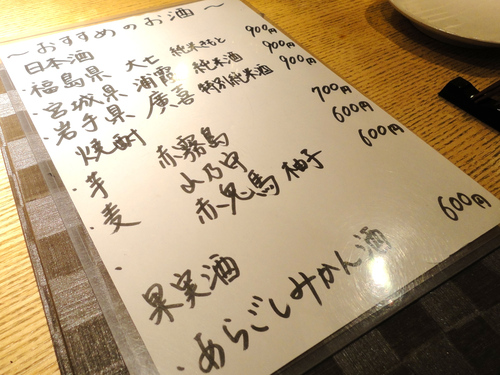 ～おすすめのお酒～
日本酒
・福島県 大七 純米きもと 900円
・宮城県 浦霞 純米酒 900円
・岩手県 廣喜 特別純米酒 900円
焼酎
・芋 赤霧島 700円
・麦 山乃守 600円
・ 赤兎馬 柚子 600円
果実酒
・あらごしみかん酒 600円